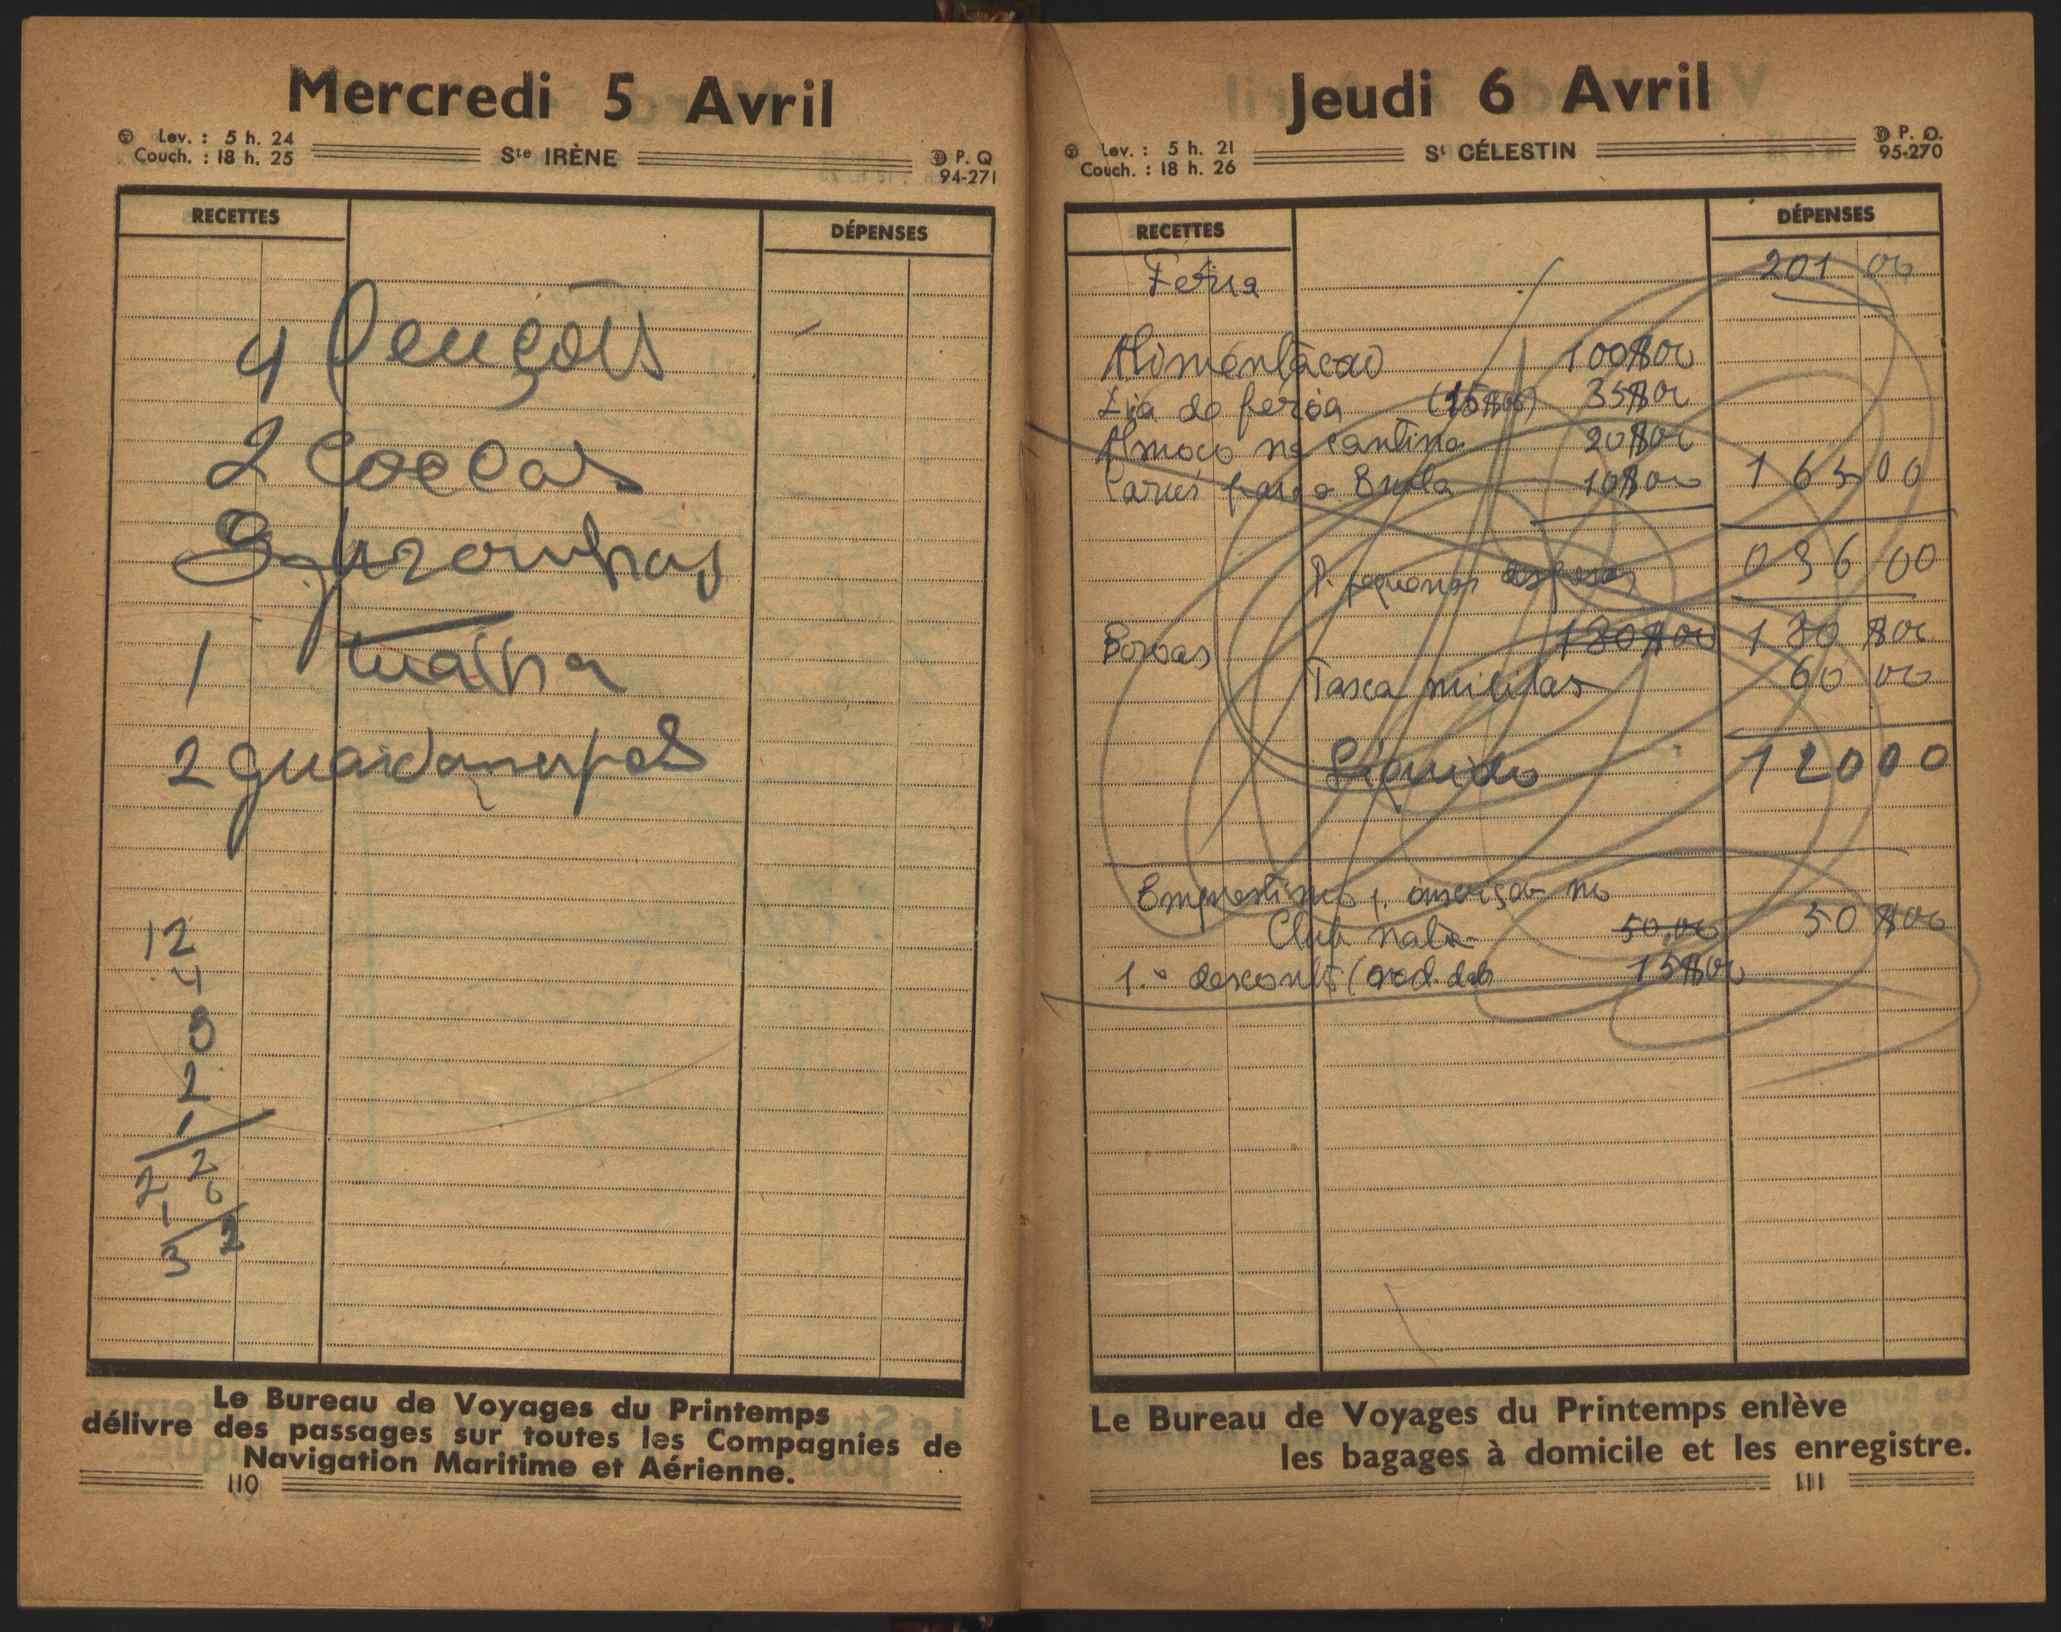 Mercredi 5 Avril
Lev. : 5 h. 24
Couch. : 18 h. 25
Ste IRÈNE
P. Q
94-271
RECETTES
DÉPENSES
4 lençóis
2 coecas
1 tualha
2 guardanapos
12
4
8
2
1
2
2 6
1
3 2
Le Bureau de Voyages du Printemps
délivre des passages sur toutes les Compagnies de
Navigation Maritime et Aérienne.
110
Jeudi 6 Avril
Lev. : 5 h. 21
Couch. : 18 h. 26
St CÉLESTIN
P. Q.
95-270
RECETTES
DÉPENSES
Féria 201 00
Alimentacao 100$00
Dia da feria (15$00) 35$00
Almoco na cantina 20$00
para o 10$00 165 00
036 00
P. pequenas despesas
Boroas 130$00 130 $00
Taxa militar 60 00
Líquido 120 00
Emprestimo p. inscriçao no
Club 50,00 50 $00
1.º desconto 15$00
Le Bureau de Voyages du Printemps enlève
les bagages à domicile et les enregistre.
111